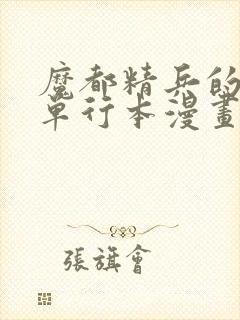 魔都精兵的
單行本漫畫
張旗會